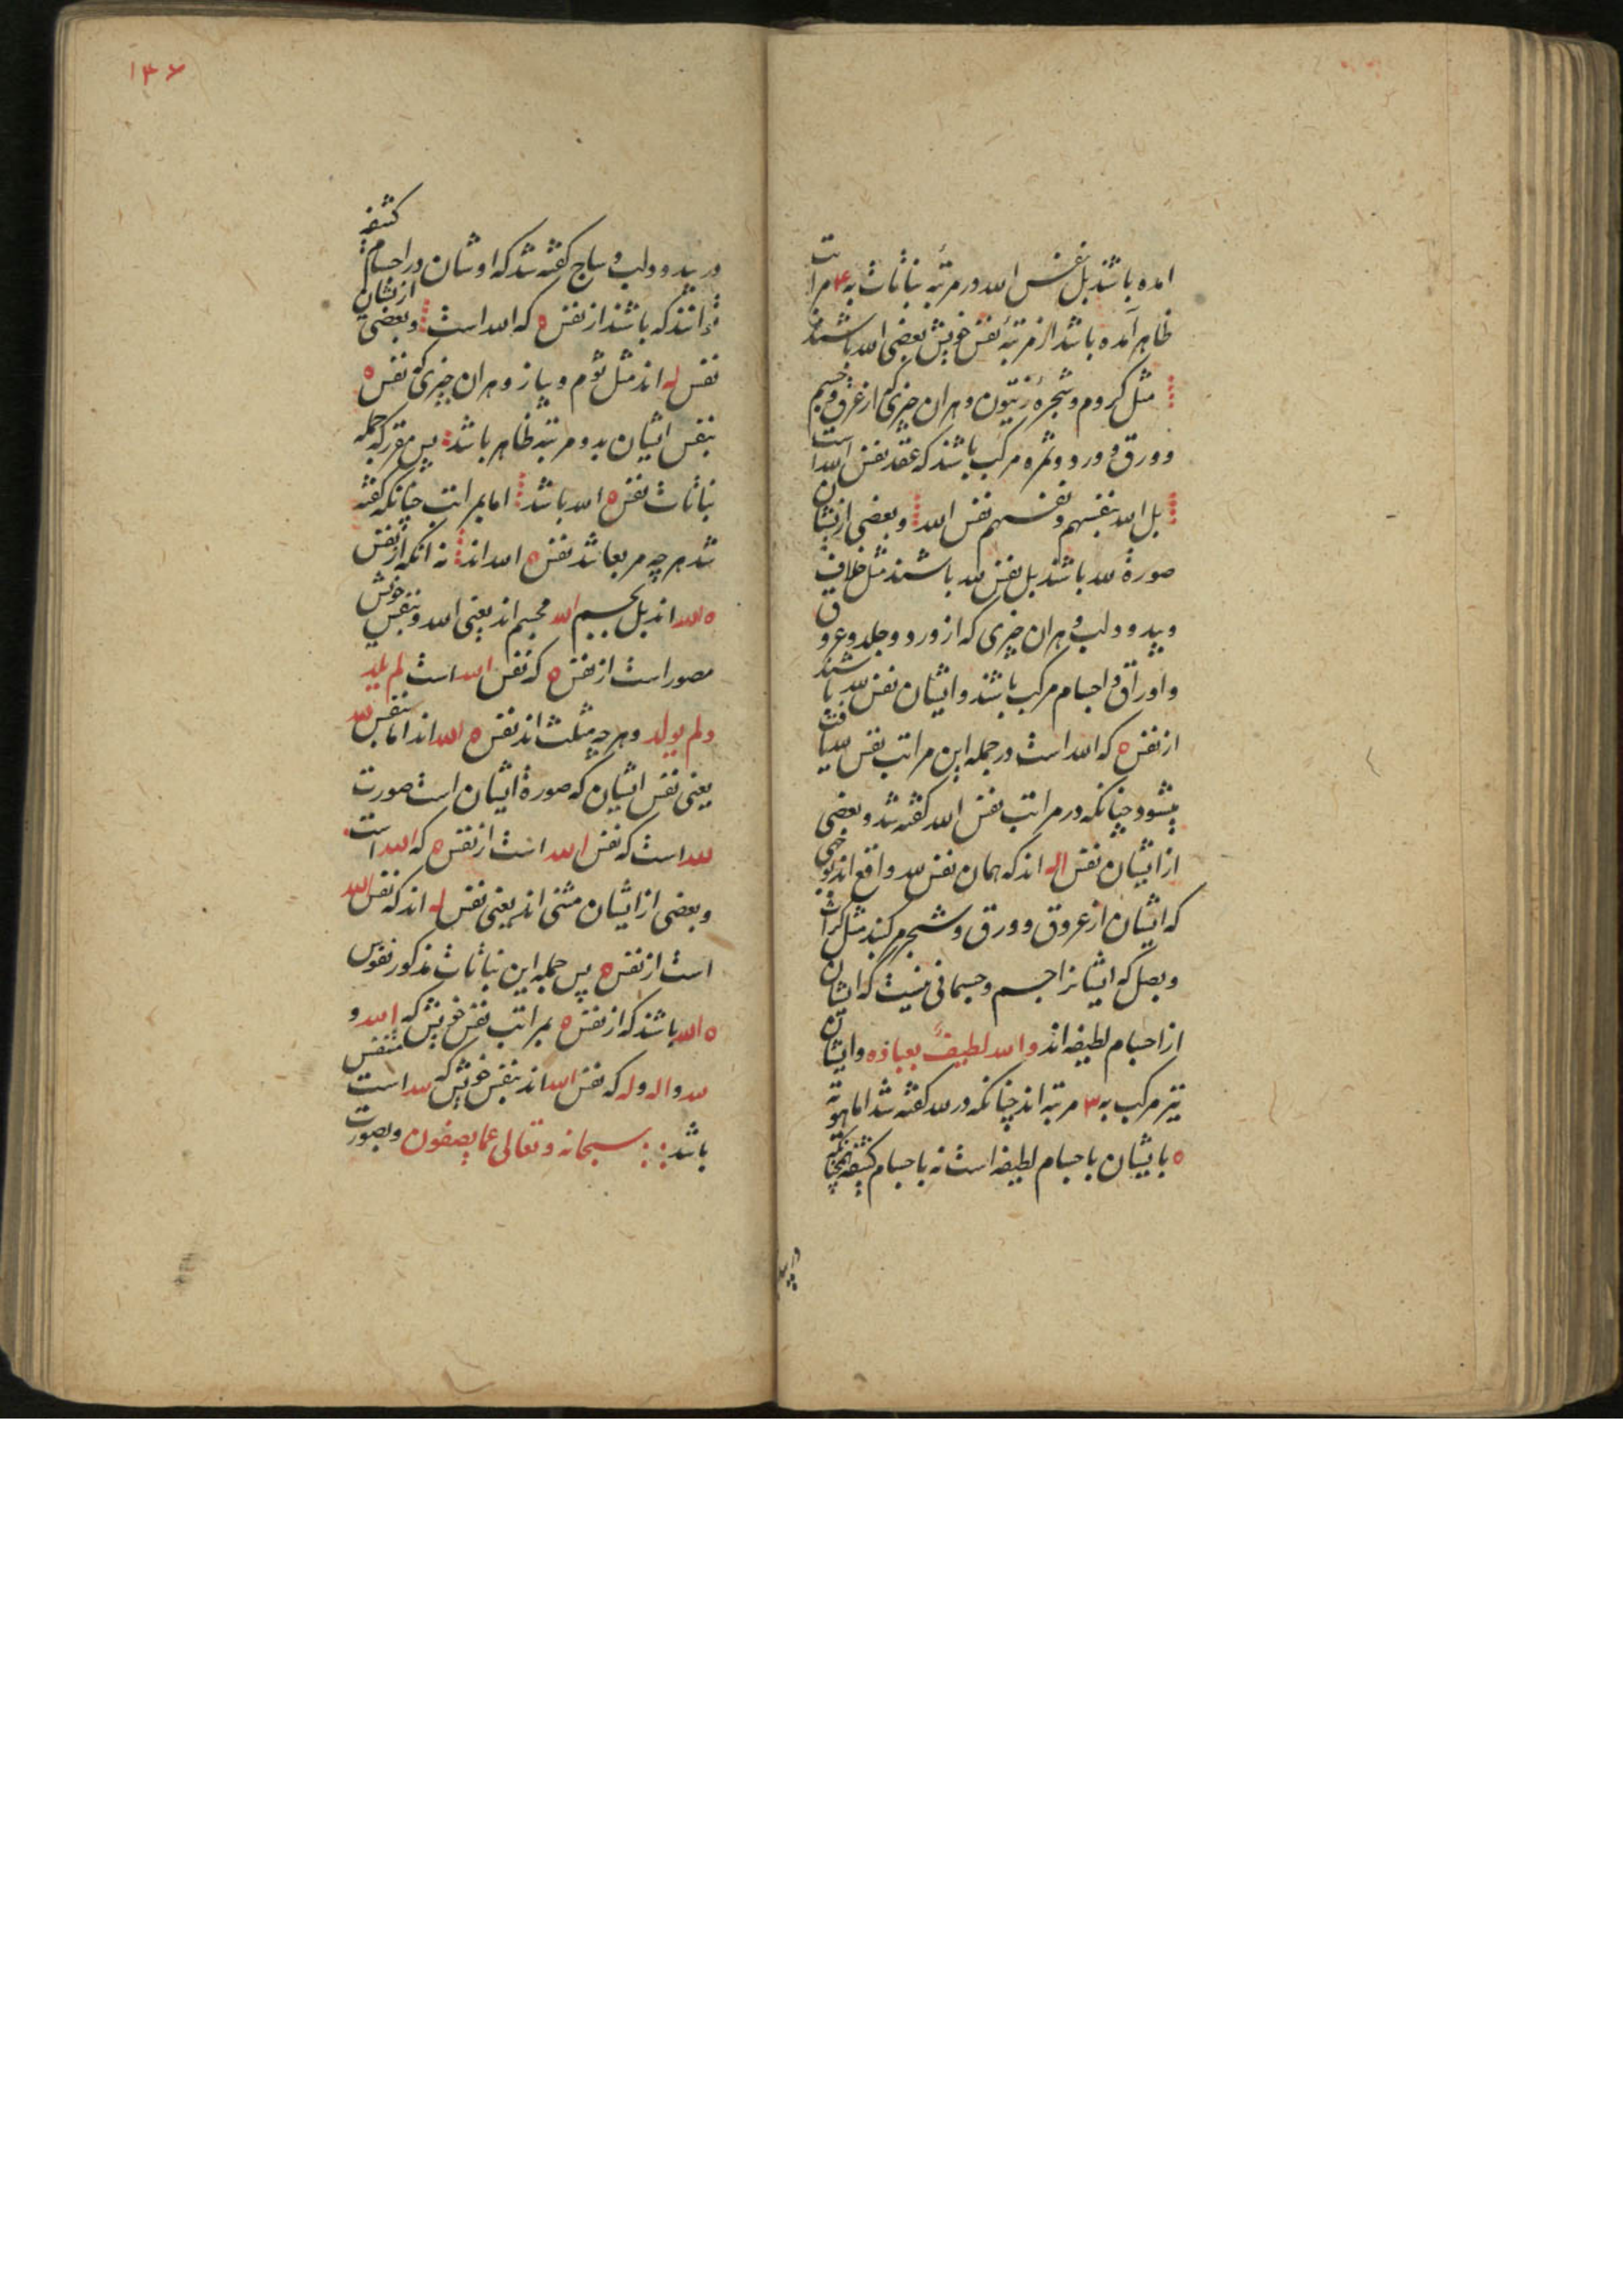 امده باشند بل نفس الله در مرتبه نباتات به ۴ مراتب
ظاهر آمده باشد از مرتبه نفس خویش بعضی الله باشند
مثل کروم و شجره زیتون و هران چیزی که از عرق و جسم
و ورق و ورد و ثمره مرکب باشند که عقد نفس الله است
بل الله بنفسهم و نفسهم نفس الله و بعضی ازیشان
صورة لله باشند بل نفس لله باشند مثل خلاف
و بید و دلب و هران چیزی که از ورد و جلد و عروق
و اوراق و اجسام مرکب باشند و ایشان نفس لله باشند
از نفس ه که الله است در جمله این مراتب نفس لله یافت
میشود چنانکه در مراتب نفس الله گفته شد و بعضی
از ایشان نفس اله اند که همان نفس لله واقع اند بوجهی
که ایشان از عروق و ورق و شجر مرکبند مثل کراث
و بصل که ایشانرا جسم و جسمانی نیست که ایشان
از اجسام لطیفه اند والله لطیف بعباده و ایشان
نیز مرکب به ۳ مرتبه اند چنانکه در لله گفته شد اما هویة
ه بایشان باجسام لطیفه است نه باجسام کثیفه همچنانکه
در بید
۱۳۶
در بید و دلب و ساج گفته شد که اوشان در اجسام کثیفه
دانند که باشند از نفس ه که الله است و بعضی ازیشان
نفس له اند مثل ثوم و پیاز و هران چیزی که نفس ه
بنفس ایشان بدو مرتبه ظاهر باشد پس مقرر که جمله
نباتات نفس ه الله باشد اما بمراتب چنانکه گفته
شد هر چه مربعا شد نفس ه الله اند نه انکه از نفس
ه لله اند بل بجسم الله مجسم اند یعنی الله و بنفس خویش
مصور است از نفس ه که نفس الله است لم یلد
ولم یولد و هر چه مثلث اند نفس ه الله اند اما بنفس لله
یعنی نفس ایشان که صورة ایشان است صورت
لله است که نفس الله است از نفس ه که الله است
و بعضی از ایشان مثنی اند یعنی نفس له اند که نفس الله
است از نفس ه پس جمله این نباتات مذکور نفوس
ه الله باشند که از نفس ه بمراتب نفس خویش که الله و
لله و اله و له که نفس الله اند بنفس خویش که لله است متنفس
باشد سبحانه وتعالی عما یصفون و بصورت